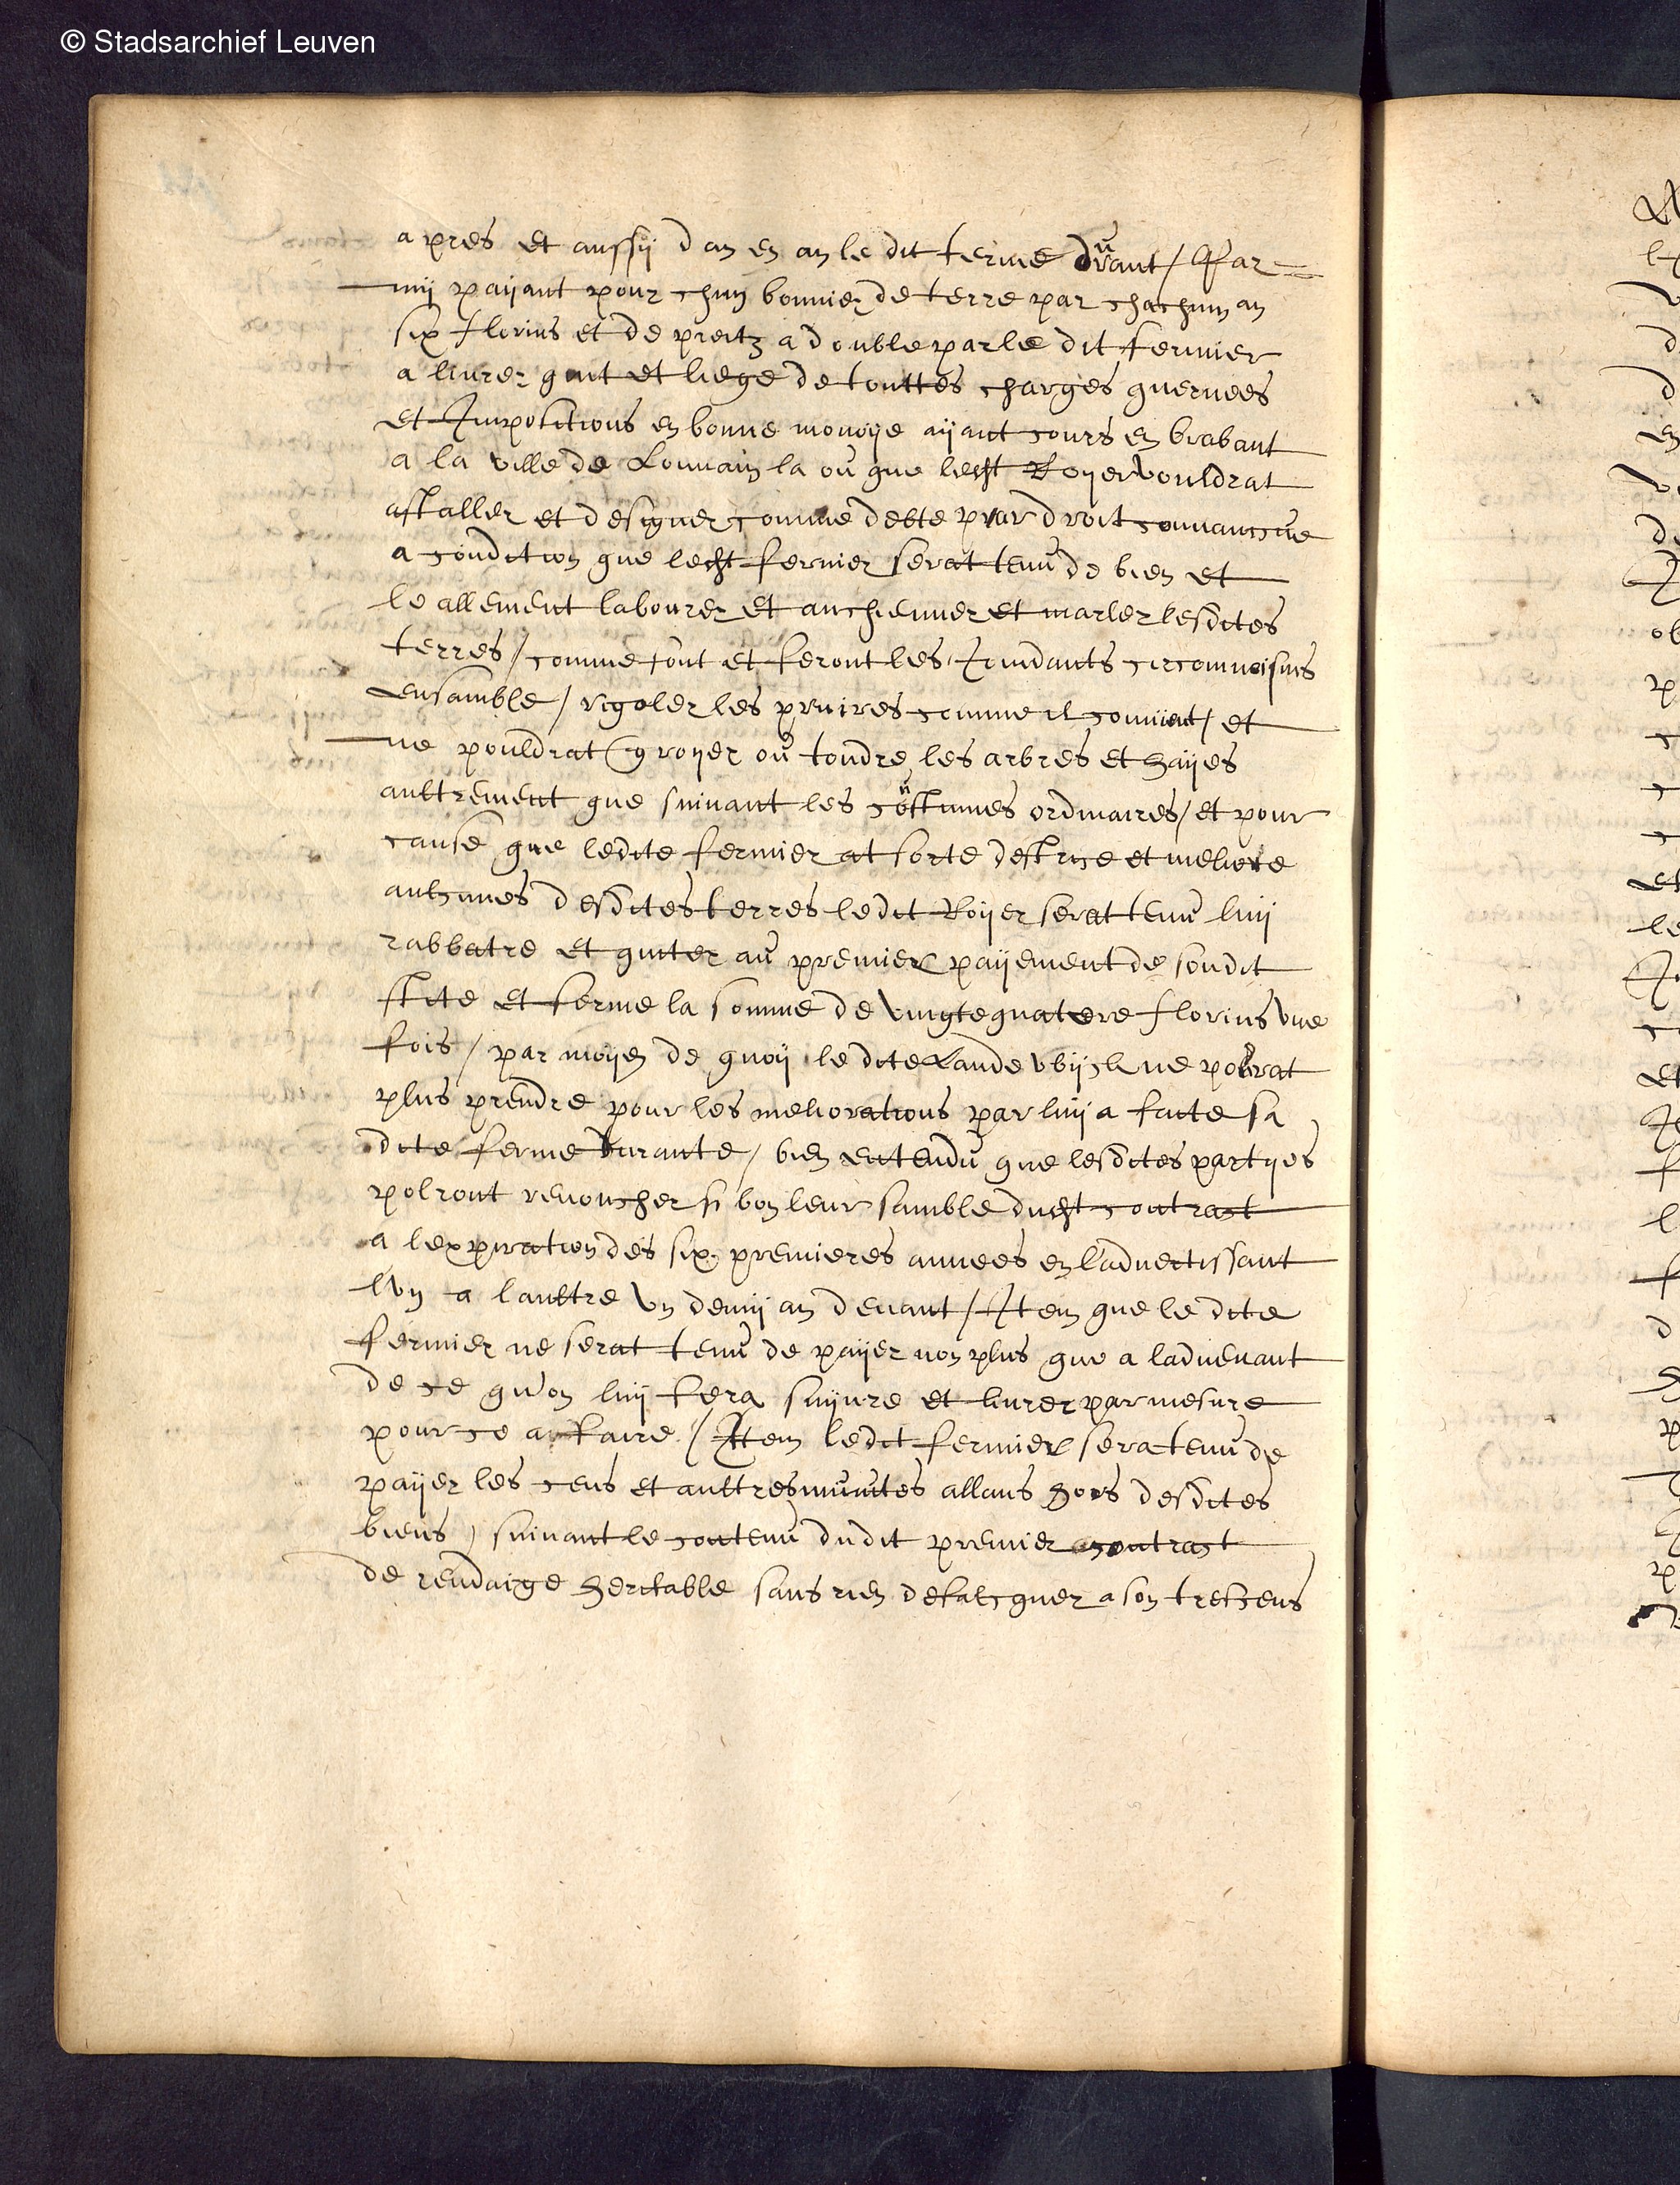 © Stadsarchief Leuven
apres et aussÿ dan en an le dit terme durant / Par=
mÿ paÿant pour chun bonnier de terre par chaschun an
six florins et de preitz a double par le dit fermier
a livrer quit et liege de touttes charges
et Impositions en bonne monoÿe aÿant cours en brabant
a la ville de Louvain la ou que ledt Roÿer vouldrat
astaller et designer comme debte par droit convanscue
a condition que ledt fermier serat tenu de bien et
leallement labourer et anchenner et marler lesdites
terres / comme font et feront les Joindants circonvoisins
ensamble / rigoler les prairies comme il convient / et
ne pouldrat croÿer ou tondre les arbres et haÿes
aultrement que suivant les coustumes ordinaires / et pour
cause que ledite fermier at forte destrise et meliore
aulcunes desdites terres ledit Roÿer serat tenu luÿ
rabbatre et quiter au premier paÿement de sondit
stite et ferme la somme de vingtequatere florins une
fois / par moÿen de quoÿ ledite Lande vbÿsch ne polrat
plus prendre pour les meliorations par luÿ a faite sa
dite ferme durante / bien entendu que lesdites partÿes
polront renoncher si bon leur samble dudt contract
a lexpiration des six premieres annees en ladvertissant
lun a laultre un demÿ an devant / Item que le dite
fermier ne serat tenu de paÿer non plus que a ladvenant
de ce qu'on luÿ fera suÿvre et livrer par mesure
pour ce a faire / Item ledit fermier sera tenu de
paÿer les cens et aultres allans hors desdites
biens, suivant le contenu dudit premier contract
de rendaige heritable sans rien defalcquer a son trescens